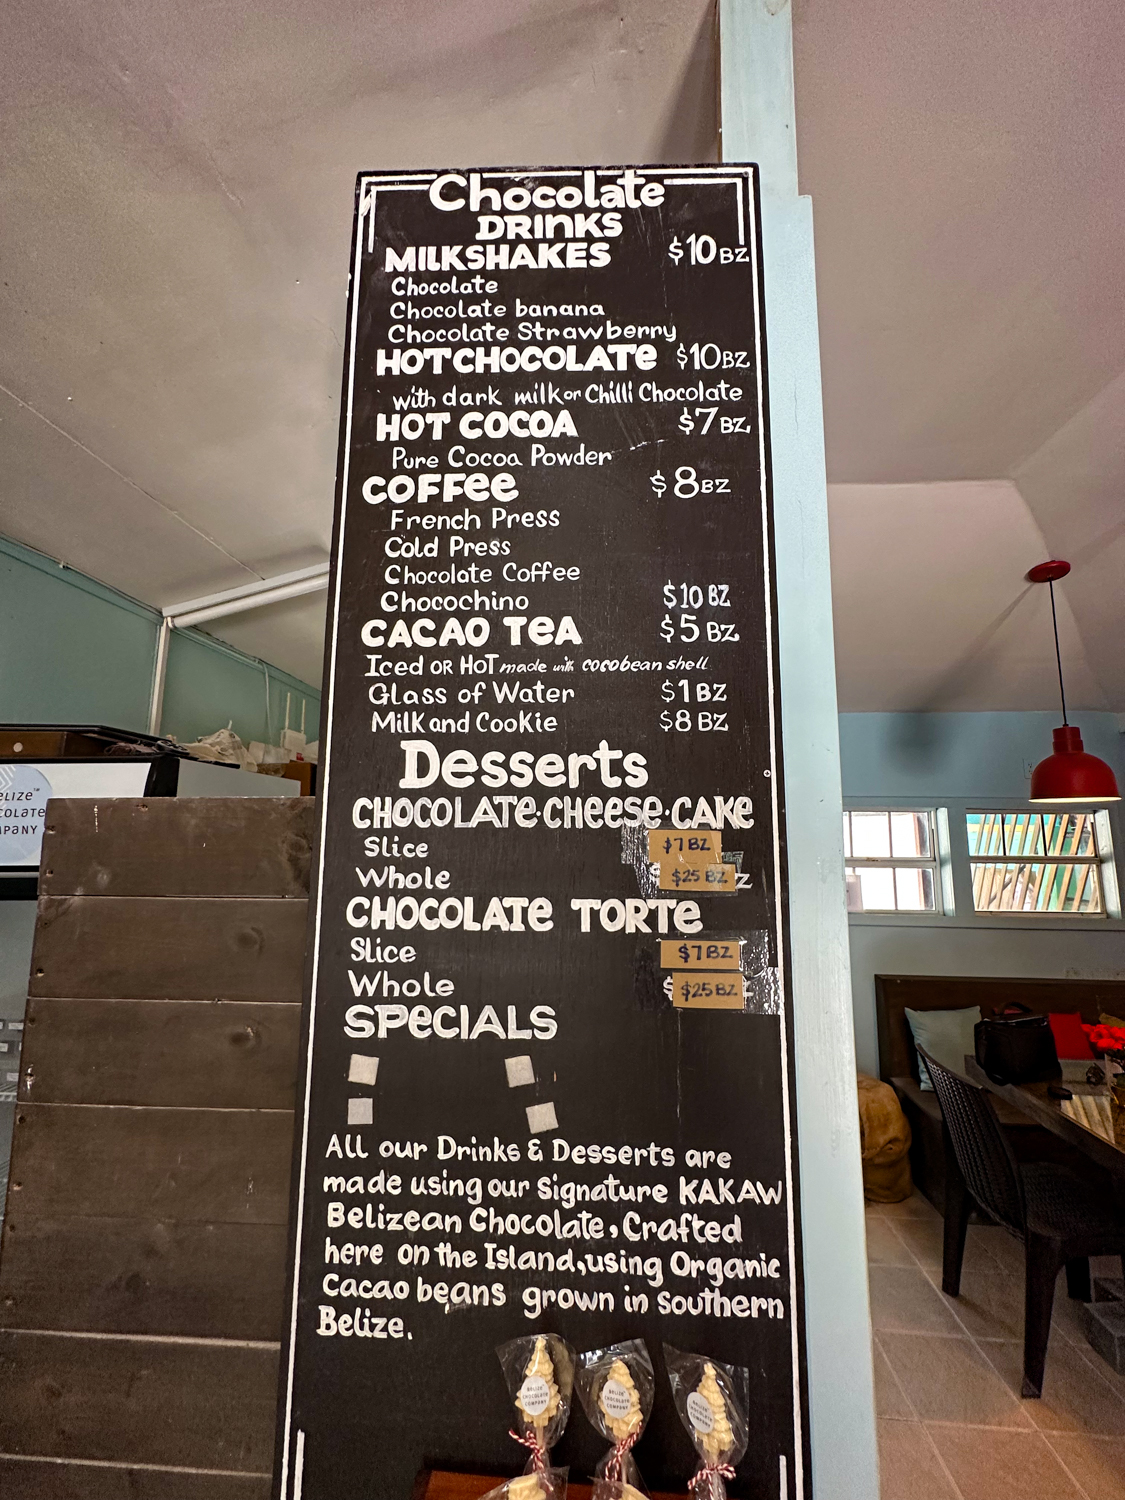 Chocolate
DRINKS
MILKSHAKES $10 BZ
Chocolate
Chocolate banana
Chocolate Strawberry
HOT CHOCOLATE $10 BZ
with dark milk or Chilli Chocolate
HOT COCOA $7 BZ
Pure Cocoa Powder
COFFEE $8 BZ
French Press
Cold Press
Chocolate Coffee
Chocochino $10 BZ
CACAO TEA $5 BZ
Iced OR HOT made with cocobean shell
Glass of Water $1 BZ
Milk and Cookie $8 BZ
Desserts
CHOCOLATE·CHEESE·CAKE
Slice $7 BZ
Whole $25 BZ
CHOCOLATE TORTE
Slice $7 BZ
Whole $25 BZ
SPECIALS
All our Drinks & Desserts are
made using our Signature KAKAW
Belizean Chocolate, Crafted
here on the Island, using Organic
Cacao beans grown in southern
Belize.
BELIZE™
CHOCOLATE
COMPANY
BELIZE™
CHOCOLATE
COMPANY
BELIZE™
CHOCOLATE
COMPANY